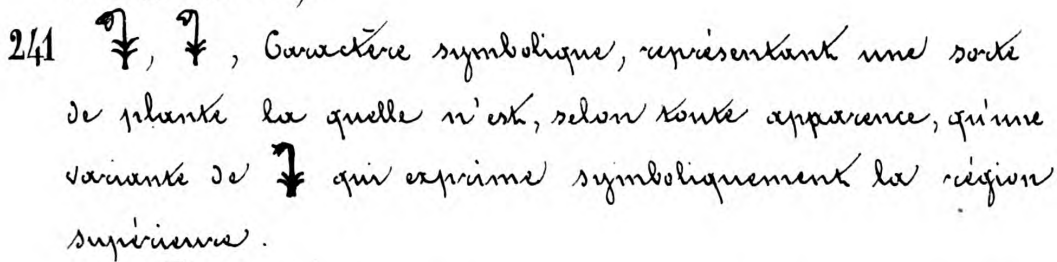 241 𓇗, 𓇗, Caractère symbolique, représentant une sorte
de plante la quelle n'est, selon toute apparence, qu'une
variante de 𓇓 qui exprime symboliquement la région
supérieure.